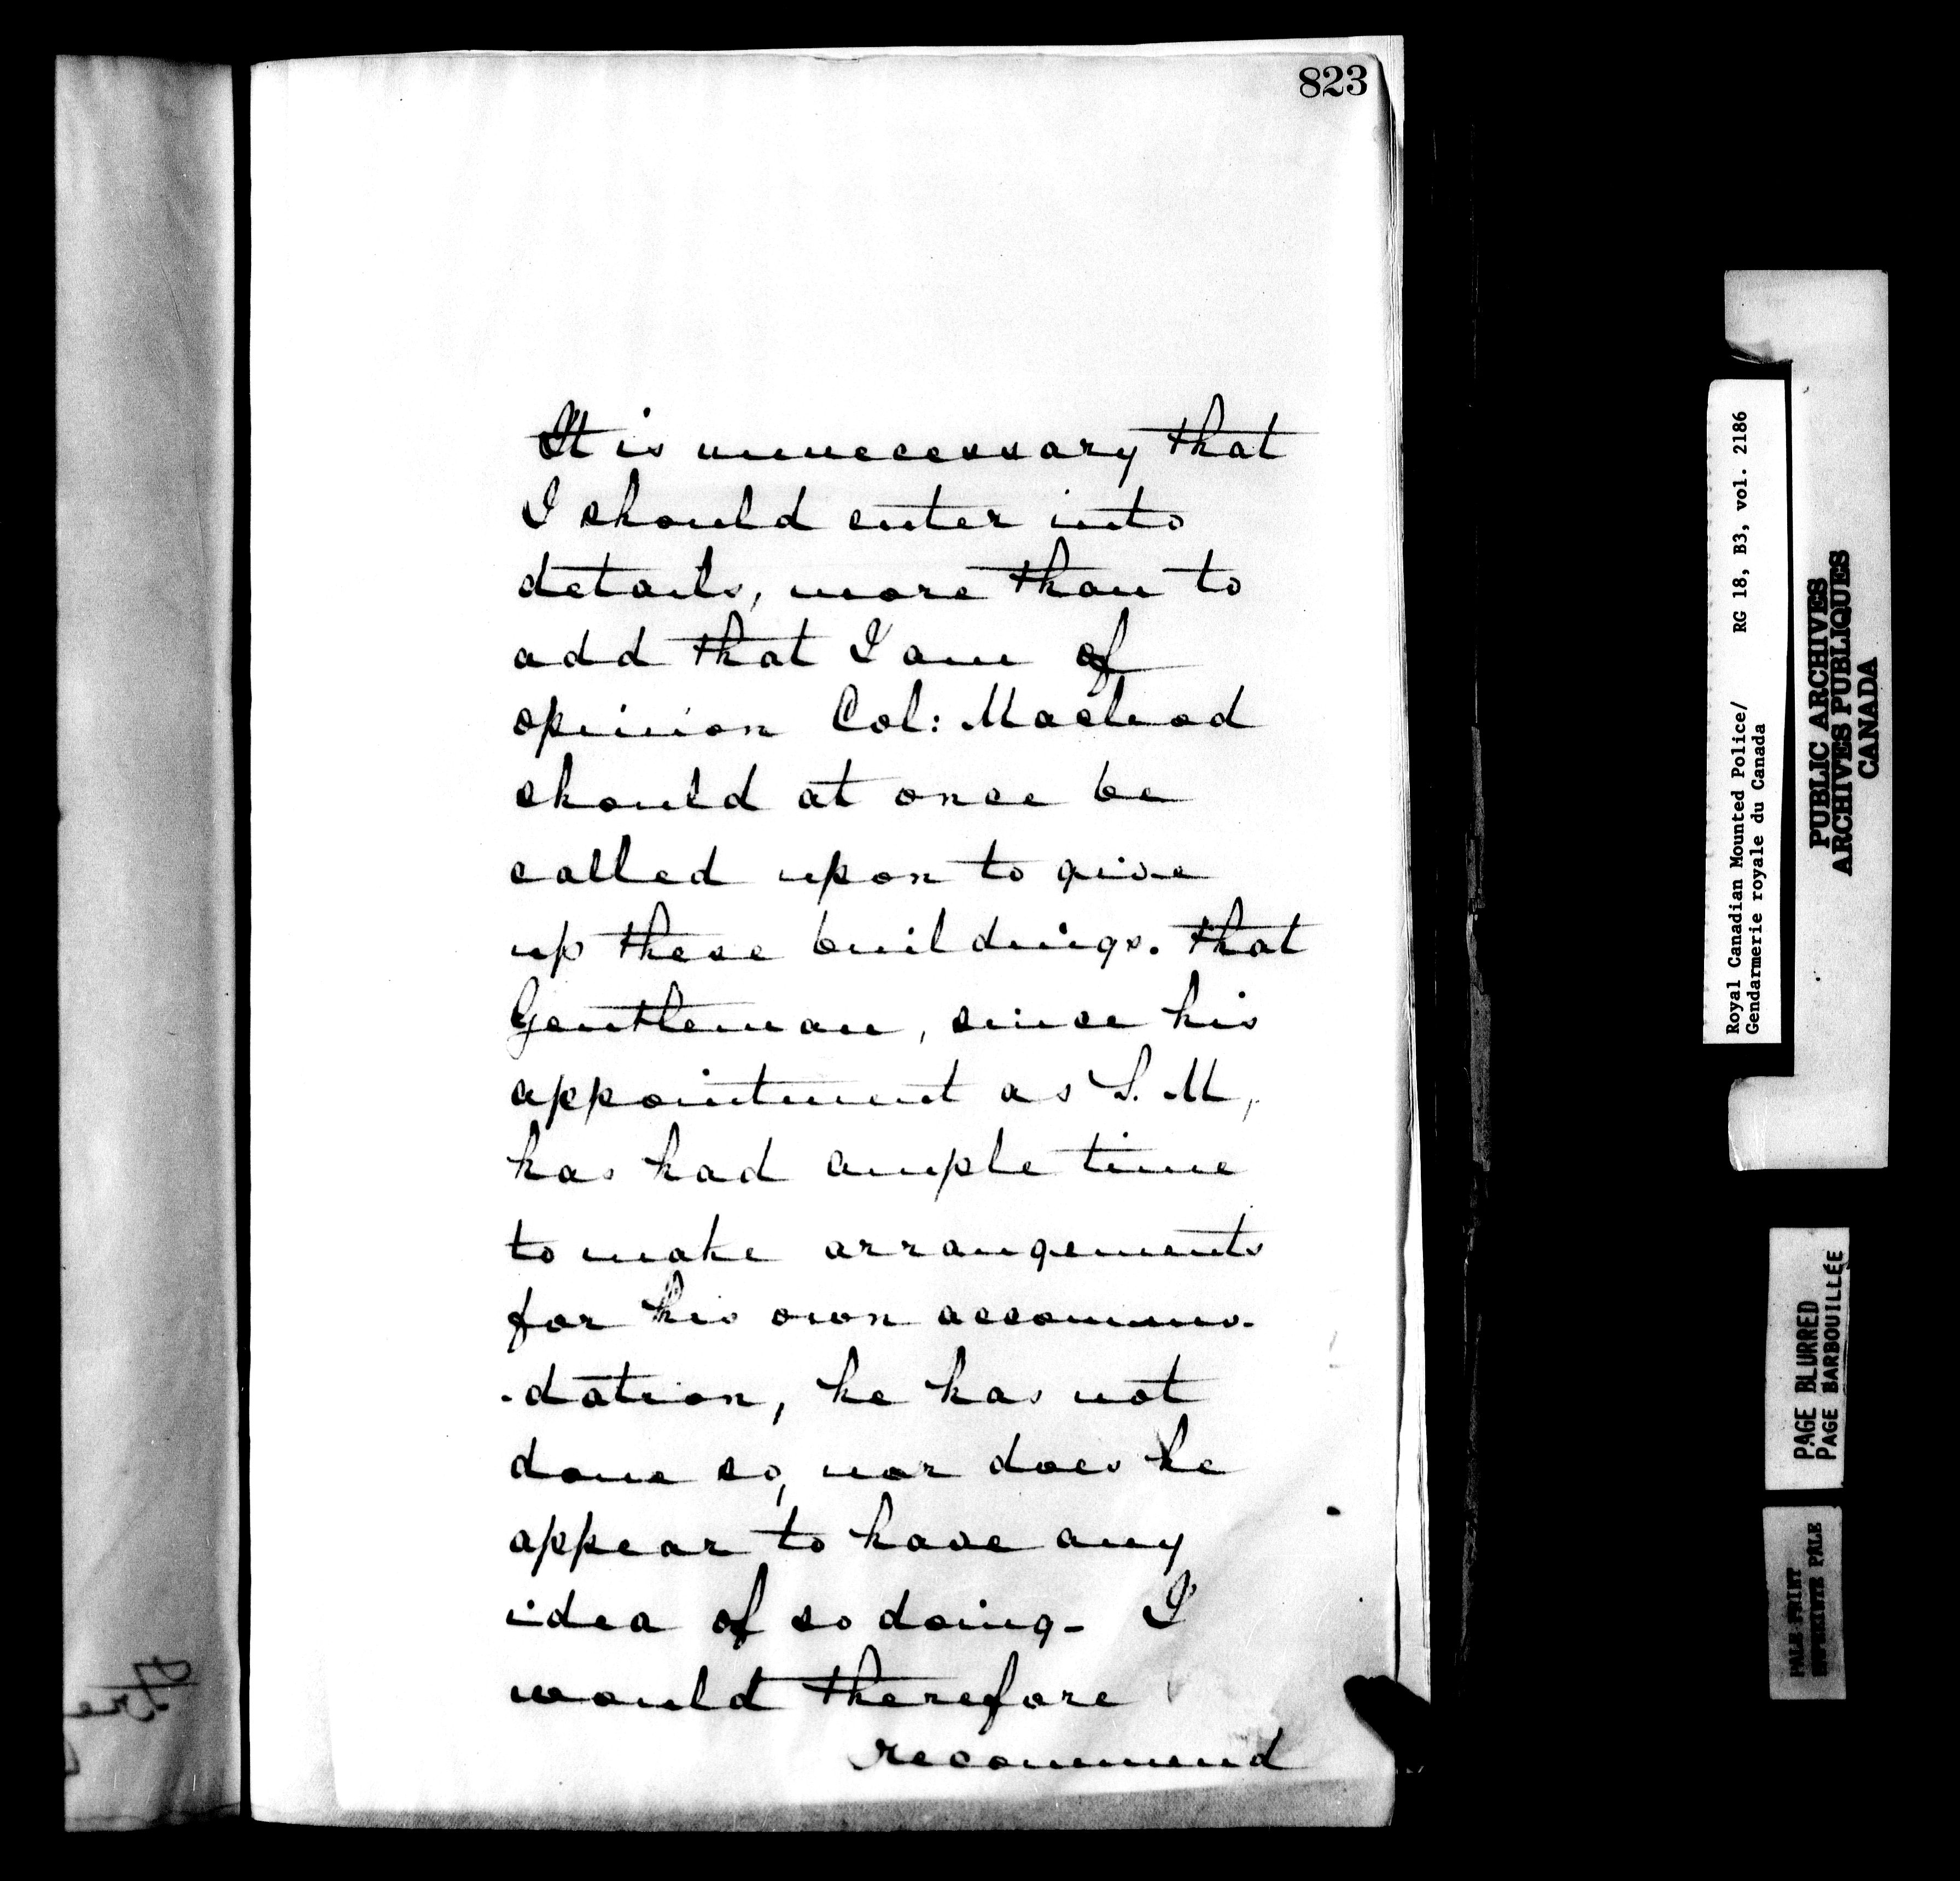 823
It is unnecessary that
I should enter into
details, more than to
add that I am of
opinion Col: Macleod
should at once be
called upon to give
up these buildings. that
Gentleman, since his
appointment as S. M,
has had ample time
to make arrangements
for his own accommo-
-dation, he has not
done so, nor does he
appear to have any
idea of so doing- I
would therefore
recommend
Royal Canadian Mounted Police/ RG 18, B3, vol. 2186
Gendarmerie royale du Canada
PUBLIC ARCHIVES
ARCHIVES PUBLIQUES
CANADA
PAGE BLURRED
PAGE BARBOUILLÉE
PALE PRINT
IMPRIMERIE PALE